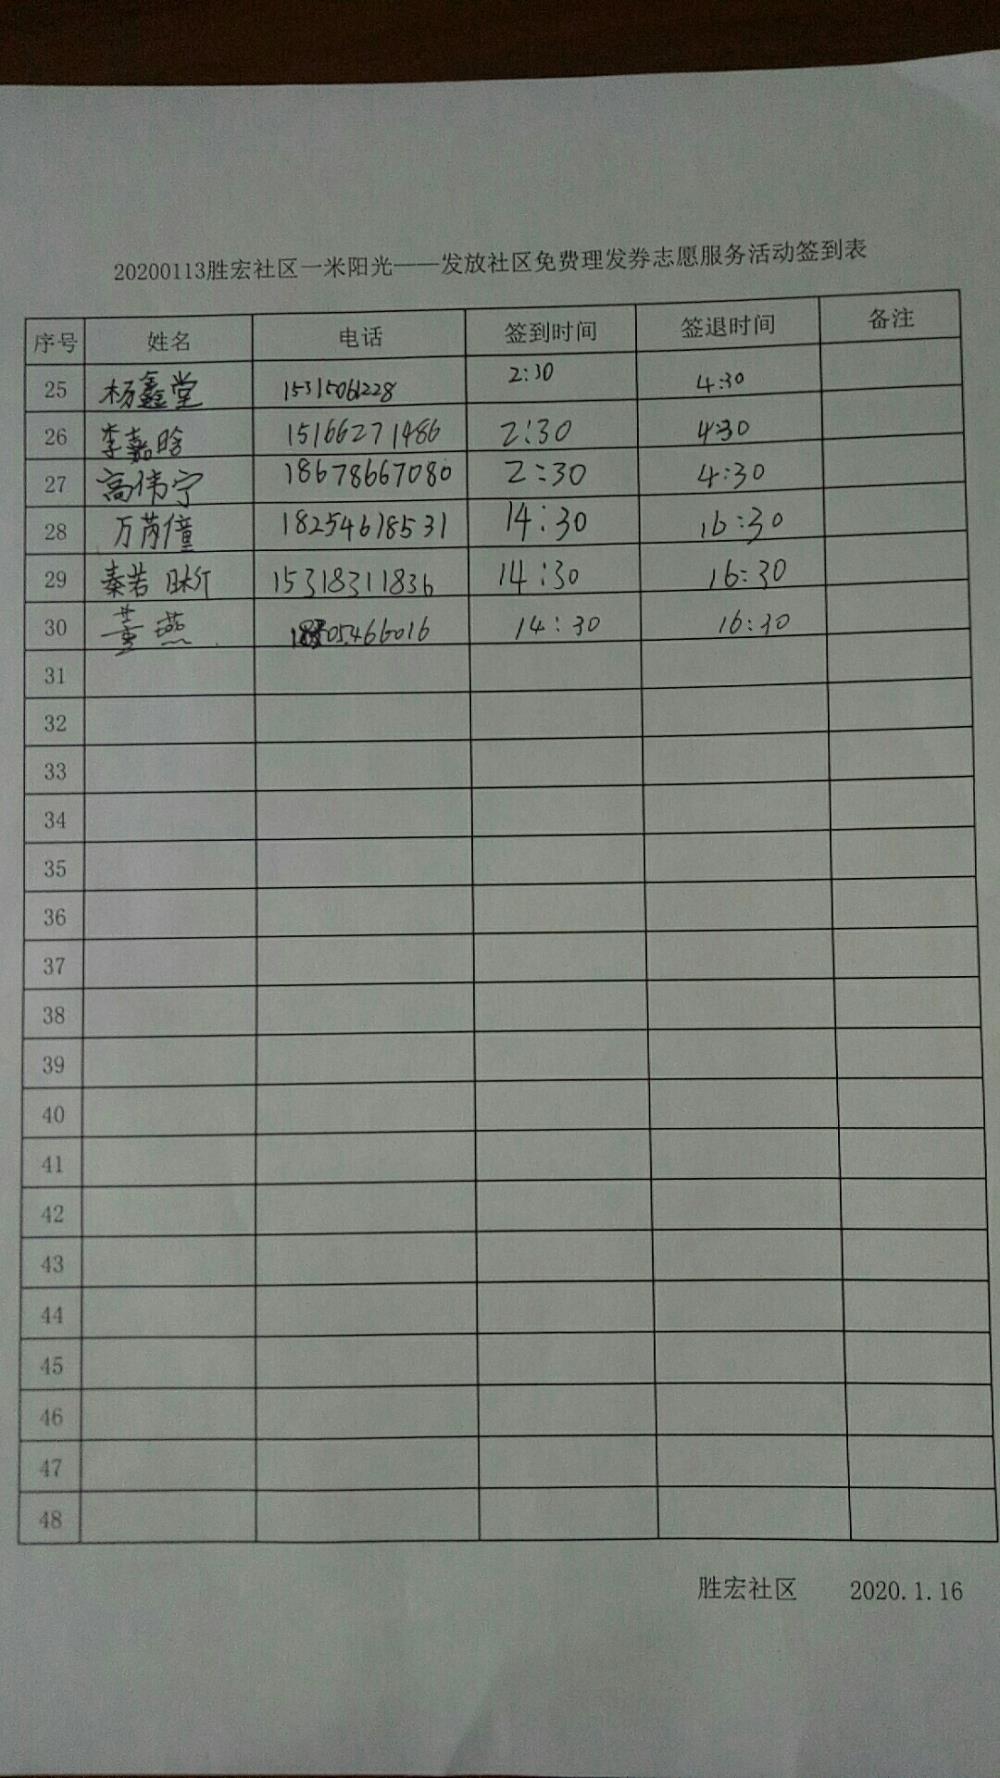 20200113胜宏社区一米阳光——发放社区免费理发券志愿服务活动签到表
序号 姓名 电话 签到时间 签退时间 备注
25 杨鑫堂 15315061228 2:30 4:30
26 李嘉晗 15166271486 2:30 4:30
27 高伟宁 18678667080 2:30 4:30
28 万芮僮 18254618531 14:30 16:30
29 秦若 15318311836 14:30 16:30
30 董燕 05466016 14:30 16:30
31
32
33
34
35
36
37
38
39
40
41
42
43
44
45
46
47
48
胜宏社区 2020.1.16